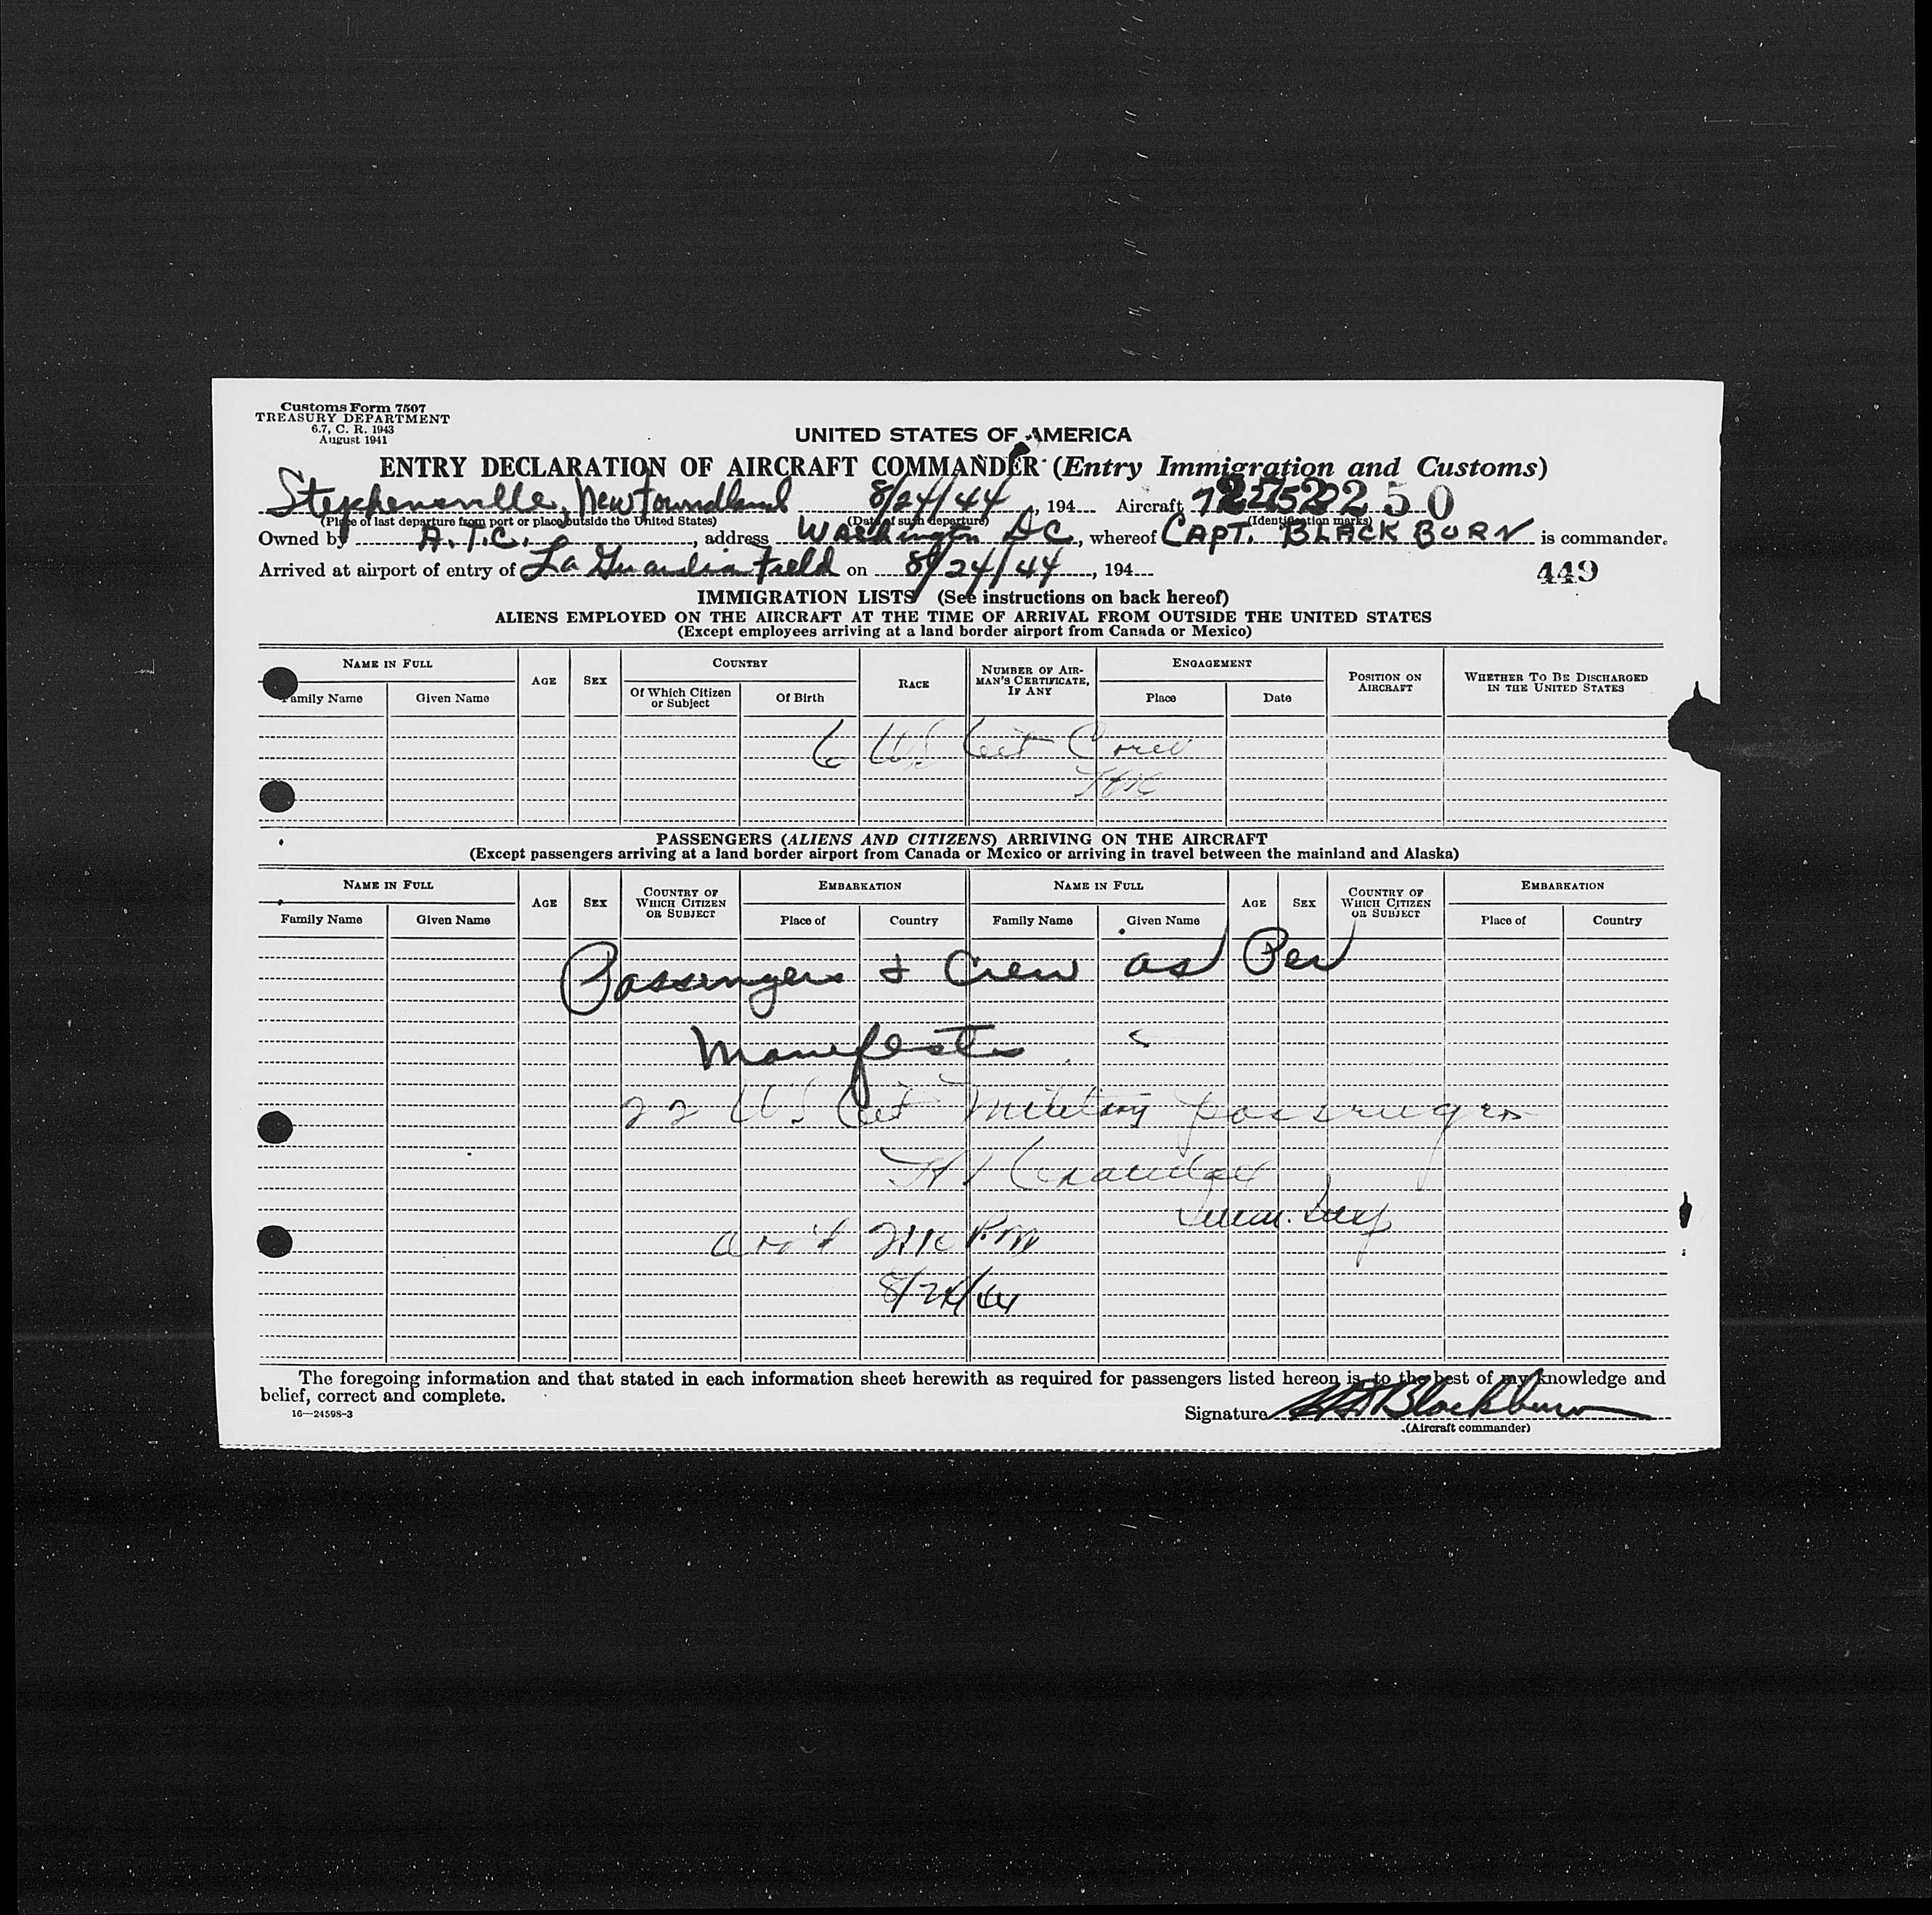 Customs Form 7507
TREASURY DEPARTMENT
6.7, C. R. 1943
August 1941
UNITED STATES OF AMERICA
ENTRY DECLARATION OF AIRCRAFT COMMANDER (Entry Immigration and Customs)
Stephenville, Newfoundland 8/24/44, 194 Aircraft
(Place of last departure from port or place outside the United States) (Date of such departure) (Identification marks)
Owned by A.T.C., address Washington DC, whereof CAPT. BLACKBURN is commander.
Arrived at airport of entry of La Guardia Field on 8/24/44, 194
449
IMMIGRATION LISTS (See instructions on back hereof)
ALIENS EMPLOYED ON THE AIRCRAFT AT THE TIME OF ARRIVAL FROM OUTSIDE THE UNITED STATES
(Except employees arriving at a land border airport from Canada or Mexico)
NAME IN FULL AGE SEX COUNTRY RACE NUMBER OF AIRMAN'S CERTIFICATE, IF ANY ENGAGEMENT POSITION ON AIRCRAFT WHETHER TO BE DISCHARGED IN THE UNITED STATES
Family Name Given Name Of Which Citizen or Subject Of Birth Place Date
6 US Cit Crew
PASSENGERS (ALIENS AND CITIZENS) ARRIVING ON THE AIRCRAFT
(Except passengers arriving at a land border airport from Canada or Mexico or arriving in travel between the mainland and Alaska)
NAME IN FULL AGE SEX COUNTRY OF WHICH CITIZEN OR SUBJECT EMBARKATION NAME IN FULL AGE SEX COUNTRY OF WHICH CITIZEN OR SUBJECT EMBARKATION
Family Name Given Name Place of Country Family Name Given Name Place of Country
Passengers & Crew as Per
Manifests
22 US Cit Military passengers
Immn. Insp
arr'd PM
8/24/44
The foregoing information and that stated in each information sheet herewith as required for passengers listed hereon is, to the best of my knowledge and
belief, correct and complete.
16—24598-3
Signature Blackburn
(Aircraft commander)